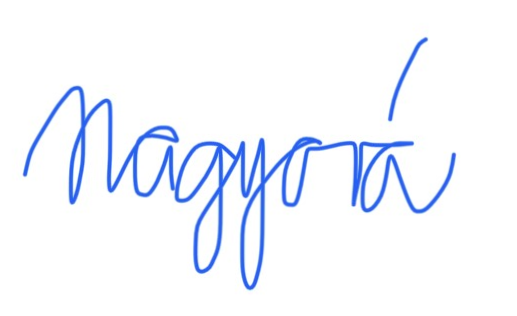 nagyorá